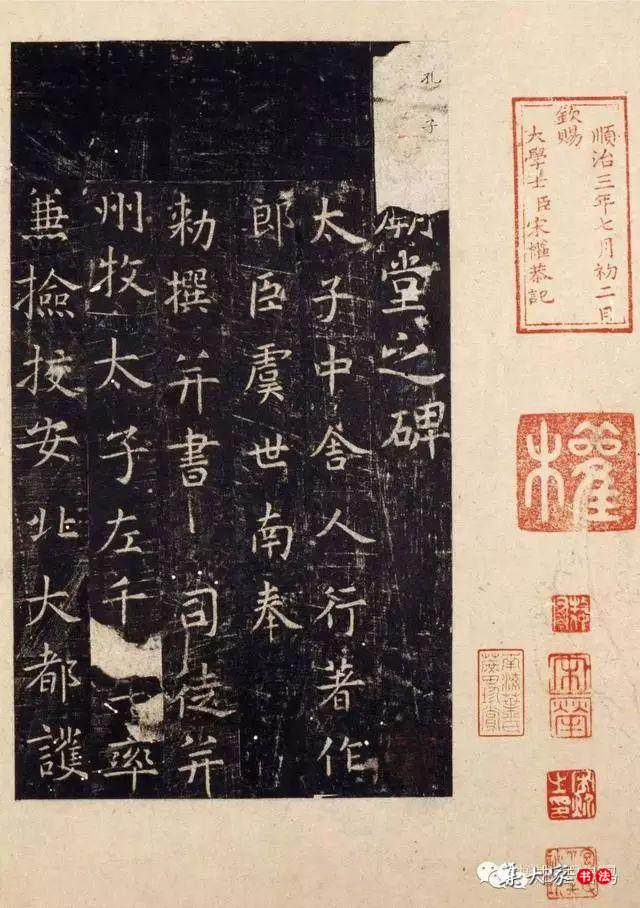 順治三年七月初二日
欽賜
大學士臣宋權恭記
權
孔子
廟堂之碑
太子中舍人行著作
郎臣虞世南奉
勑撰并書 司徒并
州牧太子左千率
兼撿挍安北大都護
集大家书法